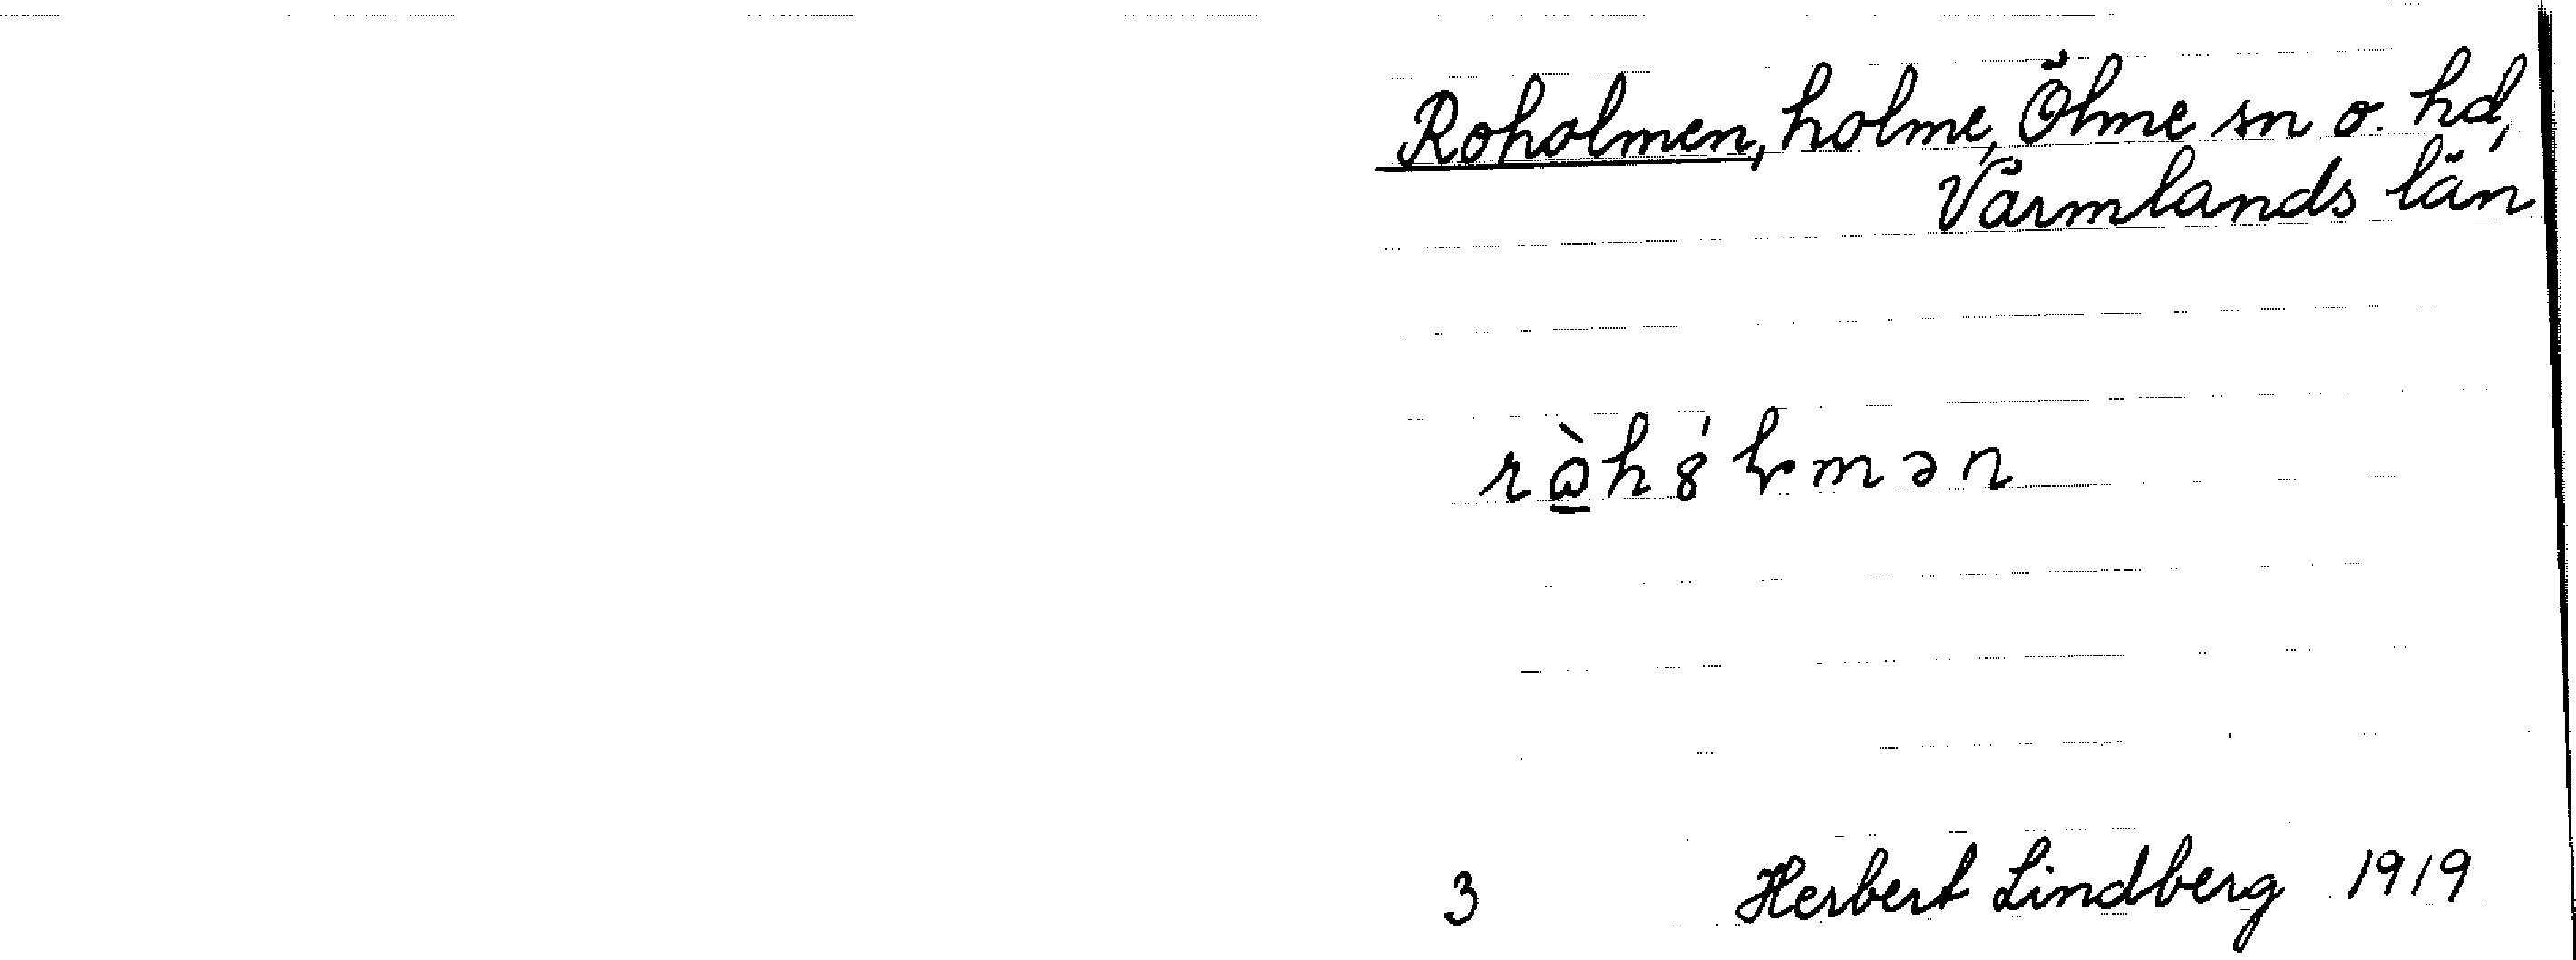 Roholmen, holme, Ölme sn o. hd,
Värmlands län
3 Herbert Lindberg 1919